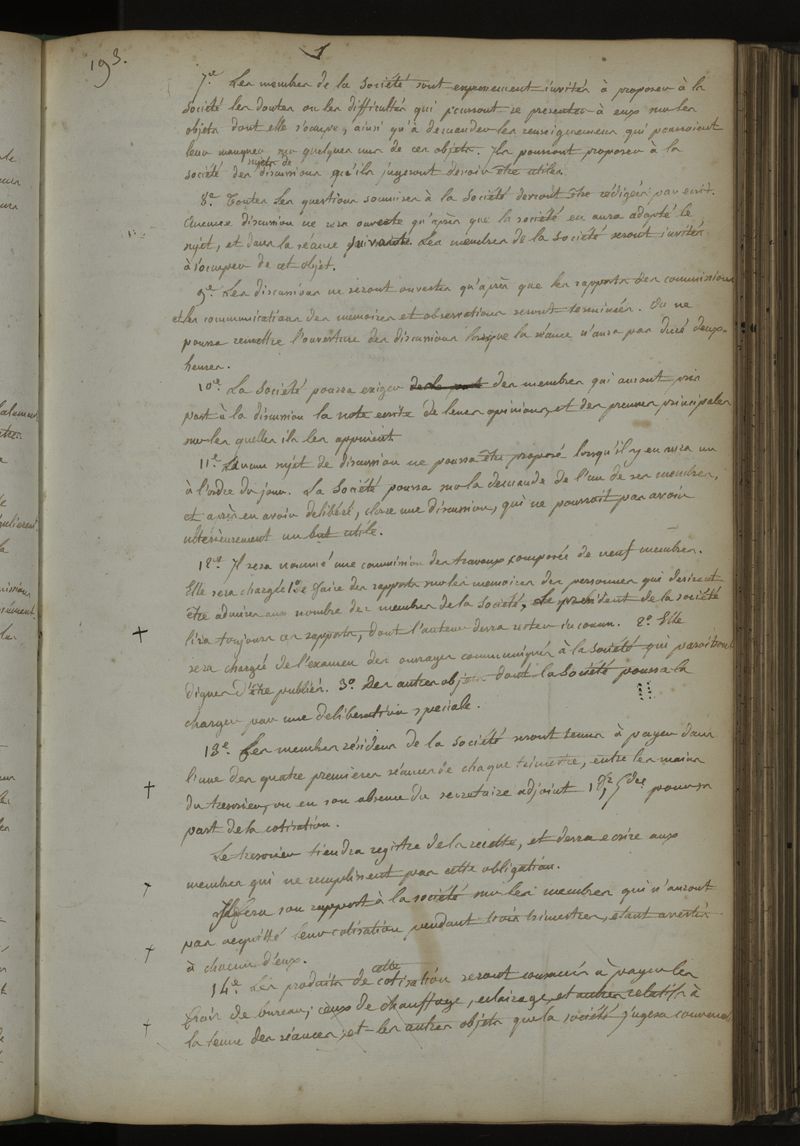 193.
7e Les membres de la Société sont expressement invités à proposer à la
société les doutes ou les difficultés qui pourront se présenter à eux sur les
objets dont elle s'occupe, ainsi qu'à demander les renseignemens qui pourroient
leur manquer sur quelques uns de ces objets. Ils pourront proposer à la
sujets de
société des discussions qu'ils jugeront devoir être utiles.
8e Toutes les questions soumises à la Société devront être rédigées par écrit.
Aucune discussion ne sera ouverte qu'après que la société en aura adopté le
sujet, et dans la séance suivante. Les membres de la Société seront invités
à s'occuper de cet objet.
9e Les discussions ne seront ouvertes qu'après que les rapports des commissions
et les communications des mémoires et observations seront terminées. On ne
pourra remettre l'ouverture des discussions lorsque la séance n'aura pas duré deux
heures.
10e La Société pourra exiger des membres qui auront pris
part à la discussion la note écrite de leurs opinions, et des preuves principales
sur les quelles ils les appuient
11e Aucun sujet de discussion ne pourra être proposé lorsqu'il y en aura un
à l'ordre du jour. La Société pourra sur la demande de l'un de ses membres,
et après en avoir délibéré, clore une discussion, qui ne pourroit pas avoir
ultérieurement un but utile.
12e Il sera nommé une commission des travaux composée de neuf membres.
Elle sera chargée 1o De faire des rapports sur les mémoires des personnes qui désirent
être admises au nombre des membres de la Société, le président de la société
lira toujours ces rapports, dont l'auteur devra rester inconnu. 2o Elle
sera chargée de l'examen des ouvrages communiqués à la Société qui paroitront
dignes d'être publiés. 3o Des autres objets dont la Société pourra la
charger par une deliberation speciale.
13e Les membres résidens de la Société seront tenus à payer dans
l'une des quatre premieres séances de chaque trimestre, entre les mains
du tresorier, ou en son absence du secretaire adjoint pour sa
part de la cotisation.
Le tresorier tiendra registre de la recette, et devra ecrire aux
membres qui ne rempliront pas cette obligation.
Il fera son rapport à la société sur les membres qui n'auront
pas acquitté leur cotisation pendant trois trimestres, étant avertis
à chacun d'eux.
14e Les produits de cette cotisation seront consacrés à payer les
frais de bureau, ceux de chauffage, eclairage, et autres relatifs à
la tenue des séances, et les autres objets que la société jugera convenable